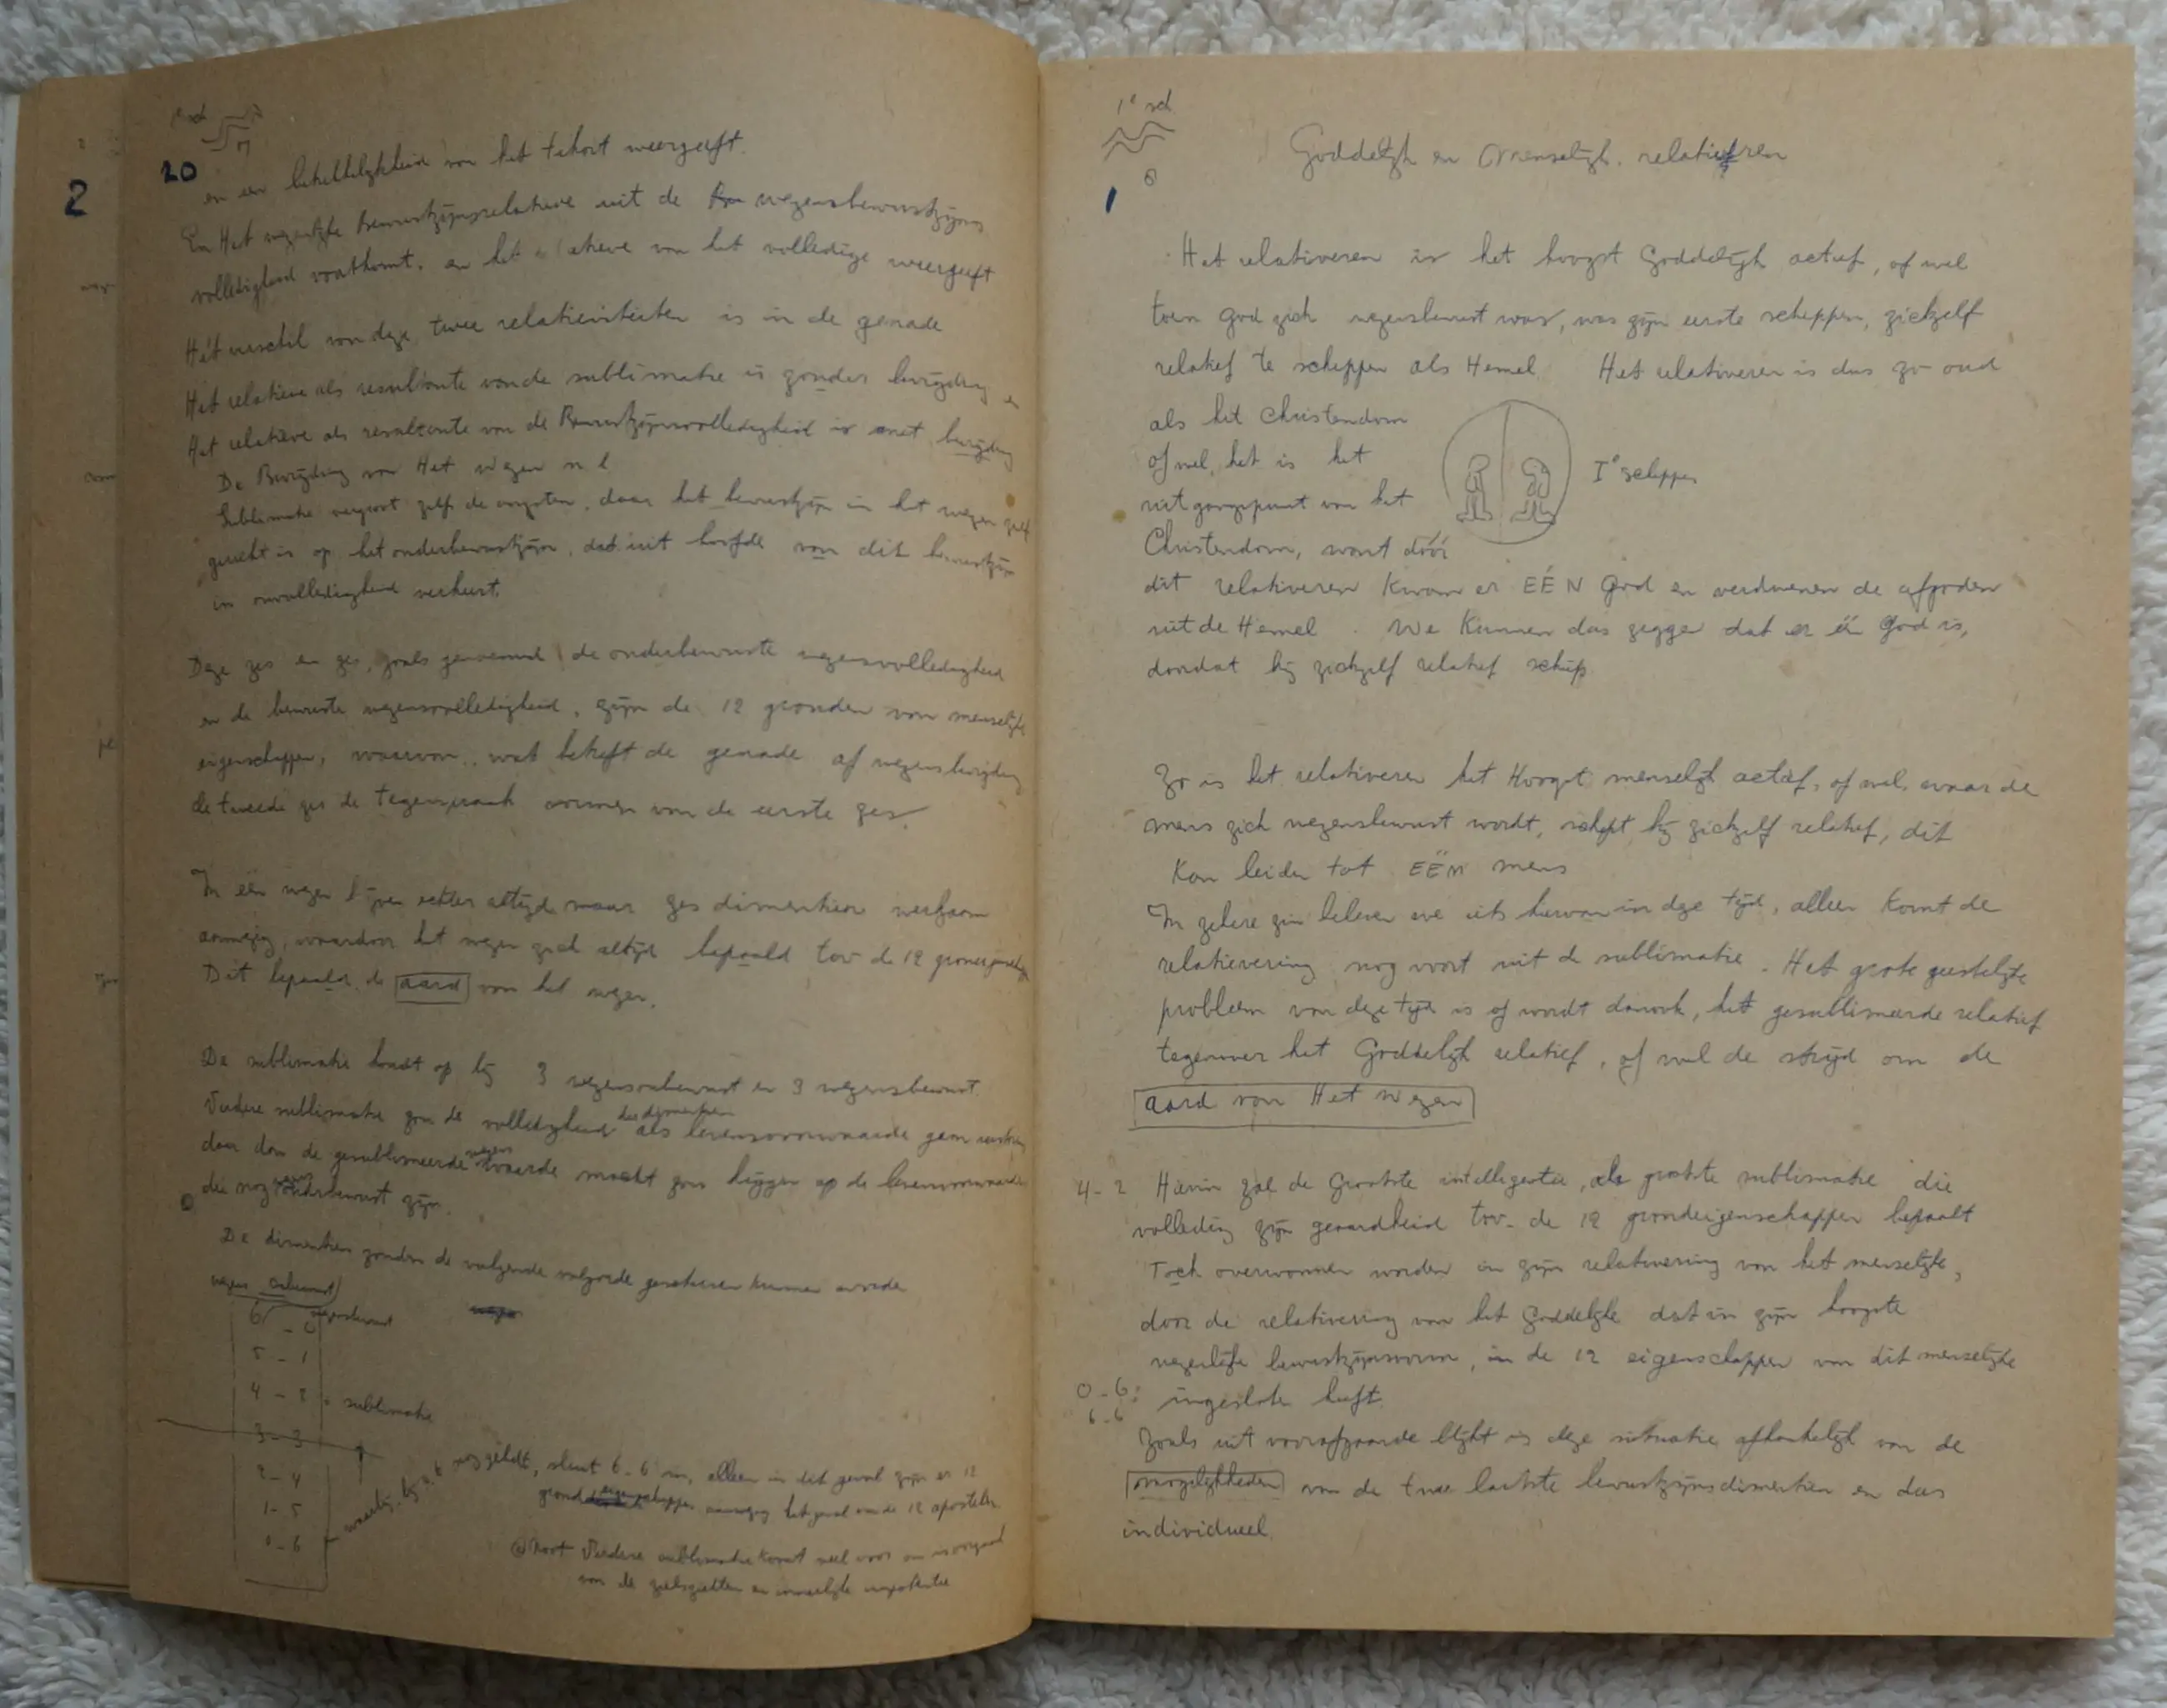 1e sd
20
2
en een betrekkelijkheid van het tekort weergeeft.
En Het wezentlijke bewustzijnsrelatieve uit de wezensbewustzijns
volledigheid voortkomt. en het relatieve van het volledige weergeeft
Het verschil van deze twee relativiteiten is in de genade
Het relatieve als resultante van de sublimatie is zonder bevrijding en
Het relatieve als resultante van de Bewustzijnsvolledigheid is met bevrijding
De Bevrijding van Het wezen n l
Sublimatie vergroot zelf de angsten, daar het bewustzijn in het wezen zelf
gericht is op het onderbewustzijn, dat uit hoofde van dit bewustzijn
in onvolledigheid verkeert.
Deze zes en zes, zoals genoemd de onderbewuste wezensvolledigheid
en de bewuste wezensvolledigheid, zijn de 12 gronden van menselijke
eigenschappen, waarvan, wat betreft de genade of wezensbevrijding
de tweede zes de tegenspraak vormen van de eerste zes.
In één wezen blijven echter altijd maar zes dimentien werkzaam
aanwezig, waardoor het wezen zich altijd bepaald tov de 12
Dit bepaald de aard van het wezen.
De sublimatie houdt op bij 3 wezensonbewust en 3 wezensbewust.
Verdere sublimatie zou de volledigheid der dimentien als levensvoorwaarde gaan
daar dan de gesublimeerde wezenswaarde macht zou krijgen op de levensvoorwaarden
die nog onderbewust zijn.
De dimentien zouden de volgende volgorde genoteerd kunnen worden
wezens onbewust
6 - 0 wezensbewust
5 - 1
4 - 2 sublimatie
3 - 3
2 - 4
1 - 5
0 - 6
waarbij, bij 0,6 nog geldt, sluit 6-6 in, alleen in dit geval zijn er 12
grondeigenschappen aanwezig het getal van de 12 apostelen
Noot Verdere sublimatie komt veel voor en is oorzaak
van de zielsziekten en innerlijke impotentie
1e sd
1
Goddelijk en Menselijk. relativeren
Het relativeren is het hoogst Goddelijk actief, of wel
toen god zich wezensbewust was, was zijn eerste scheppen, zichzelf
relatief te scheppen als Hemel Het relativeren is dus zo oud
als het Christendom
of wel, het is het
1e scheppen
uitgangspunt van het
Christendom, want dóór
dit relativeren kwam er EÉN god en verdwenen de afgoden
uit de Hemel. We kunnen dus zeggen dat er één god is,
doordat hij zichzelf relatief schiep.
Zo is het relativeren het Hoogst menselijk actief, of wel, waar de
mens zich wezensbewust wordt, schept hij zichzelf relatief, dit
kan leiden tot EËN mens
In zekere zin beleven we iets hiervan in deze tijd, alleen komt de
relatievering nog voort uit de sublimatie. Het grote geestelijke
probleem van deze tijd is of wordt dan ook, het gesublimeerde relatief
tegenover het Goddelijk relatief, of wel de strijd om de
aard van Het Wezen
4-2 Hierin zal de Grootste intelligentie, als grootste sublimatie die
volledig zijn geaardheid tov. de 12 grondeigenschappen bepaalt
Toch overwonnen worden in zijn relativering van het menselijke,
door de relativering van het goddelijke dat in zijn hoogste
wezenlijke bewustzijnsvorm, in de 12 eigenschappen van dit menselijke
0-6: ingesloten heeft.
6-6
Zoals uit voorafgaande blijkt is deze situatie afhankelijk van de
mogelijkheden van de twee laatste bewustzijnsdimentien en dus
individueel.